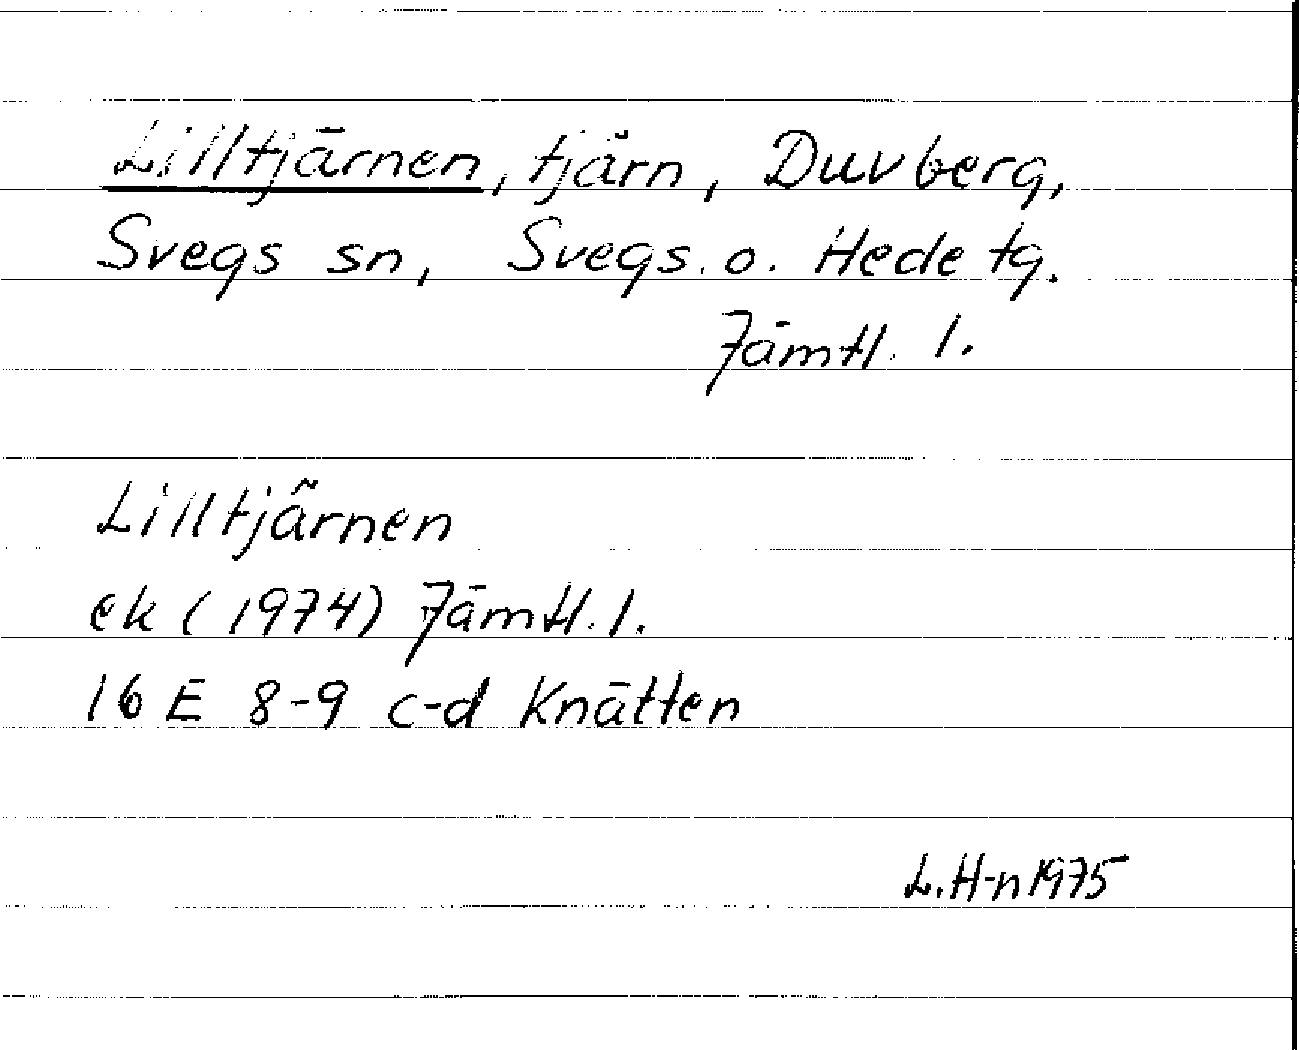 Lilltjärnen, tjärn, Duvberg,
Svegs sn, Svegs. o. Hede tg.
Jämtl. l.
Lilltjärnen
ek (1974) Jämtl. l.
16 E 8-9 c-d Knätten
L. H-n 1975